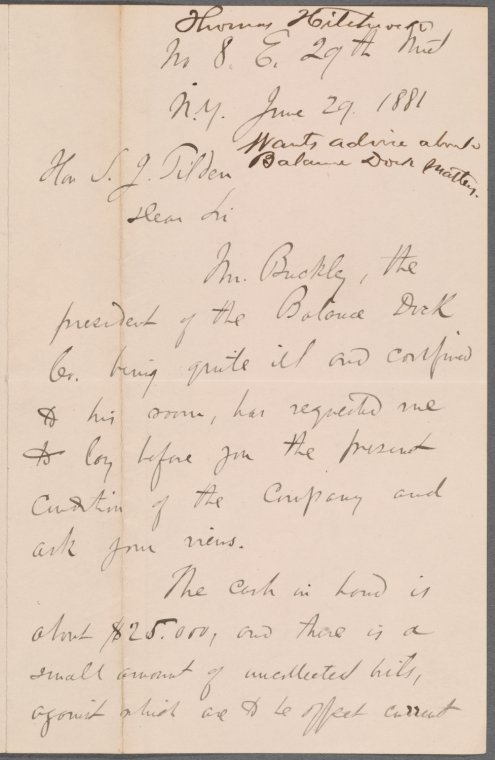 Thomas Hitchcock
No 8. E. 29th Street
N.Y. June 29. 1881
Wants advice about
Balance Dock matters.
Hon S. J. Tilden
Dear Sir
Mr. Buckley, the
president of the Balance Dock
Co. being quite ill and confined
to his room, has requested me
to lay before you the present
condition of the Company and
ask your views.
The cash in hand is
about $25.000, and there is a
small amount of uncollected bills,
against which are to be offset current